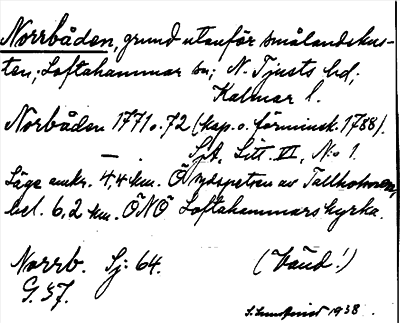 Norrbåden, grund utanför smålandskus-
ten; Loftahammar sn; N. Tjusts hd;
Kalmar l.
Norbåden 1771 o. 72 (kap. o. förminsk. 1788).
— . SjA, Litt. VI, N:o 1.
Läge omkr. 4,4 km. Ö av Tallholmen,
bel. 6,2 km. ÖNÖ Loftahammars kyrka.
Norrb. Sj: 64. (båud!)
G. 37.
S. Lundqvist 1938.